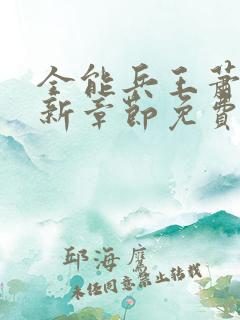 全能兵王萧
新章節免費
邱海鹰
未经同意禁止转载